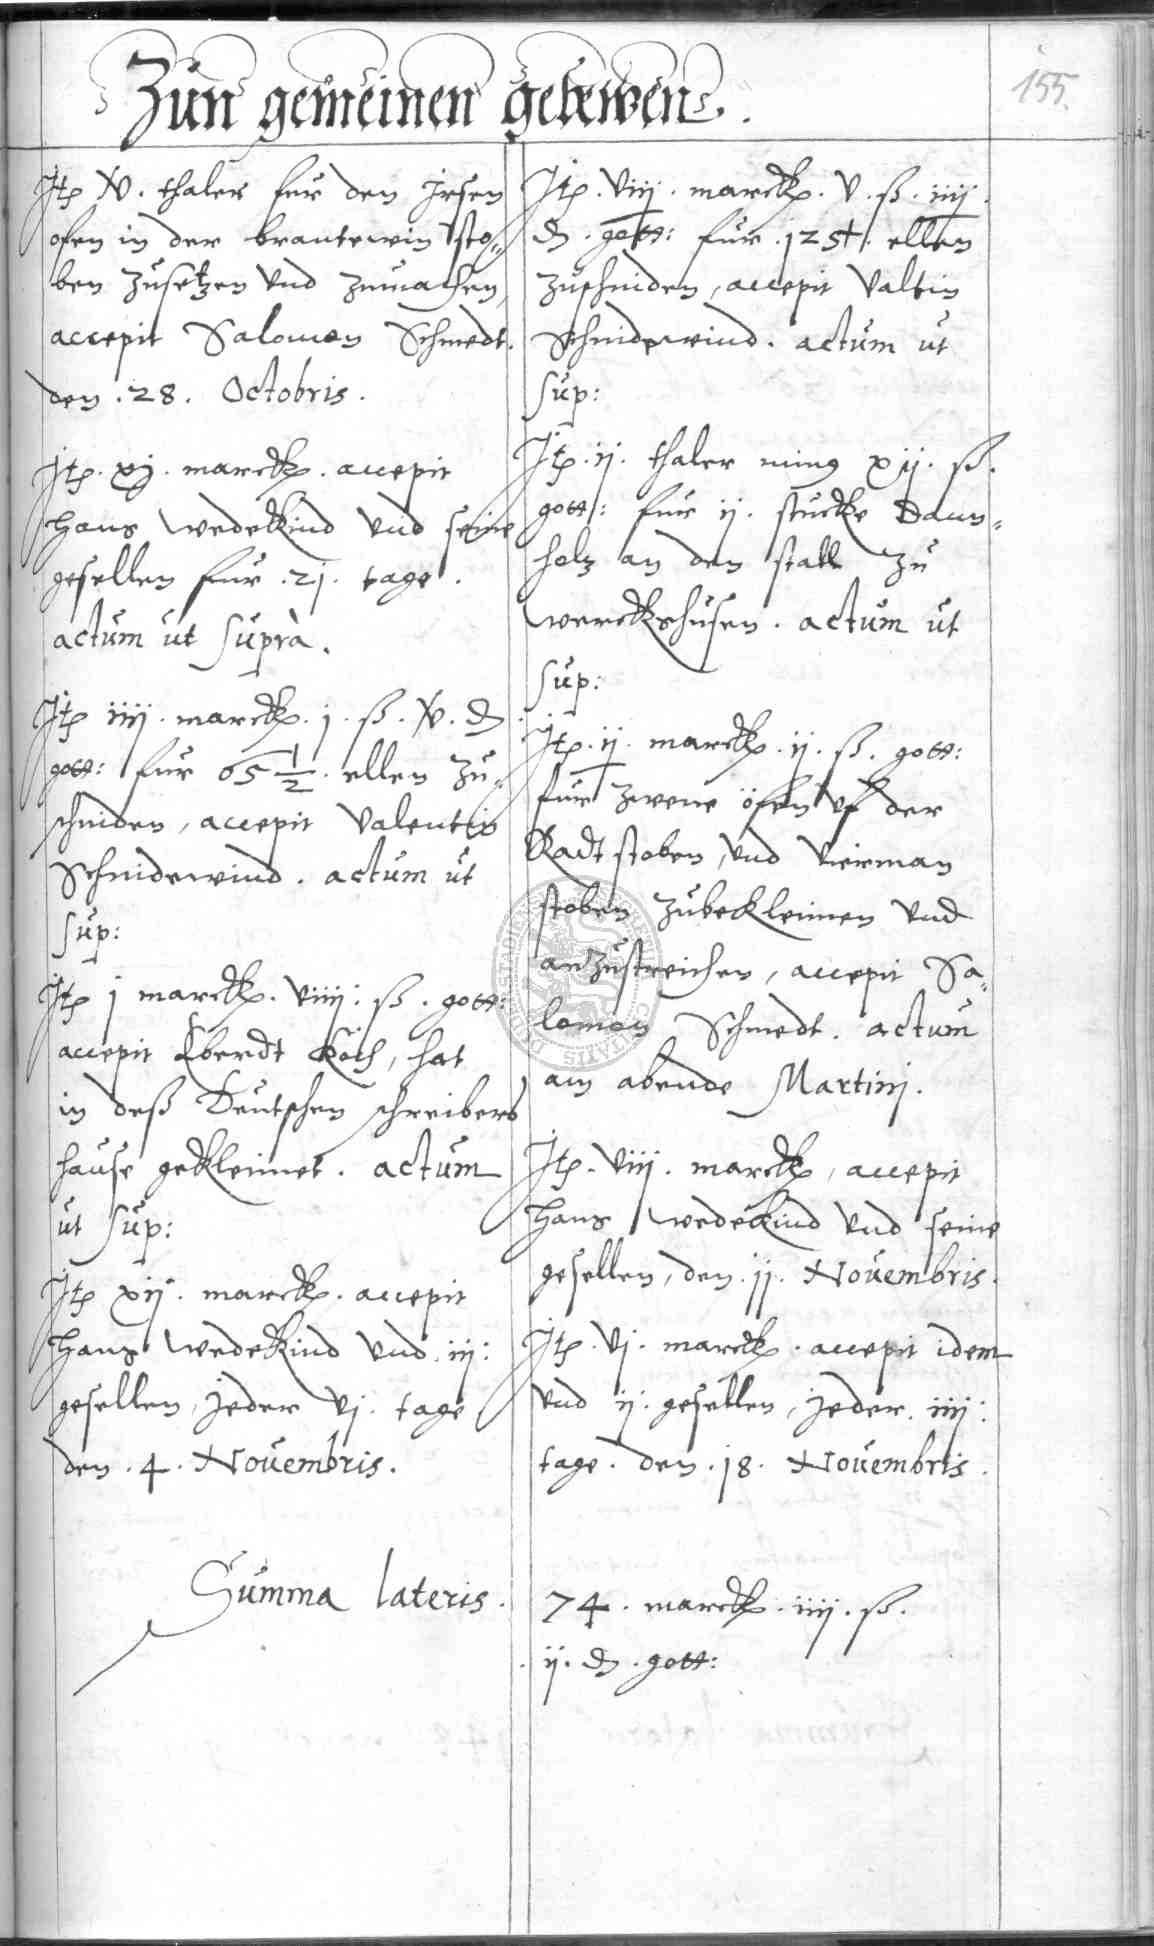 Zun gemeinen gebewen.
155.
Jtē v. thaler fur den Jrsen
ofen in der brantewin sto=
ben zusetzen vnd zumachen,
accepit Salomon Schmedt.
den .28. Octobris.
Jtē. xj. marckē. accepit
Hans Wedekind vnd seine
gesellen fur .21. tage.
actum ut suprà.
Jtē iiij. marckē. j. ß. v. ₰
gott: fur 65 1/2. ellen zu=
schniden, accepit Valentin
Schnidewind. actum ut
sup:
Jtē j marckē. viiij: ß. gott:
accepit Eberdt Koch, hat
in deß Deutschen schreibers
hause gekleimet. actum
ut sup:
Jtē xij. marckē. accepit
Hans Wedekind vnd .iij:
gesellen, jeder vj. tage
den .4. Novembris.
Jtē. viij. marckē. v. ß. iiij.
₰. gott: fur .125 1/2. ellen
zuschniden, accepit Valtin
Schnidewind. actum ut
sup:
Jtē. ij. thaler ming xij. ß.
gott: fur ij. stucke Daun=
holz an den stall zu
Werckshusen. actum ut
sup:
Jtē. ij. marckē. ij. ß. gott:
fur zwene öfen vf der
Radt stoben, vnd vierman
stoben zubekleimen vnd
anzustreichen, accepit Sa=
lomon Schmedt. actum
am abende Martinj.
Jtē. viij. marckē, accepit
Hans Wedekind vnd seine
gesellen, den .11. Novembris.
Jtē. vj. marckē. accepit idem
vnd ij. gesellen, jeder. iiij:
tage. den .18. Novembris.
Summa lateris. 74. marckē. iiij. ß.
ij. ₰. gott: